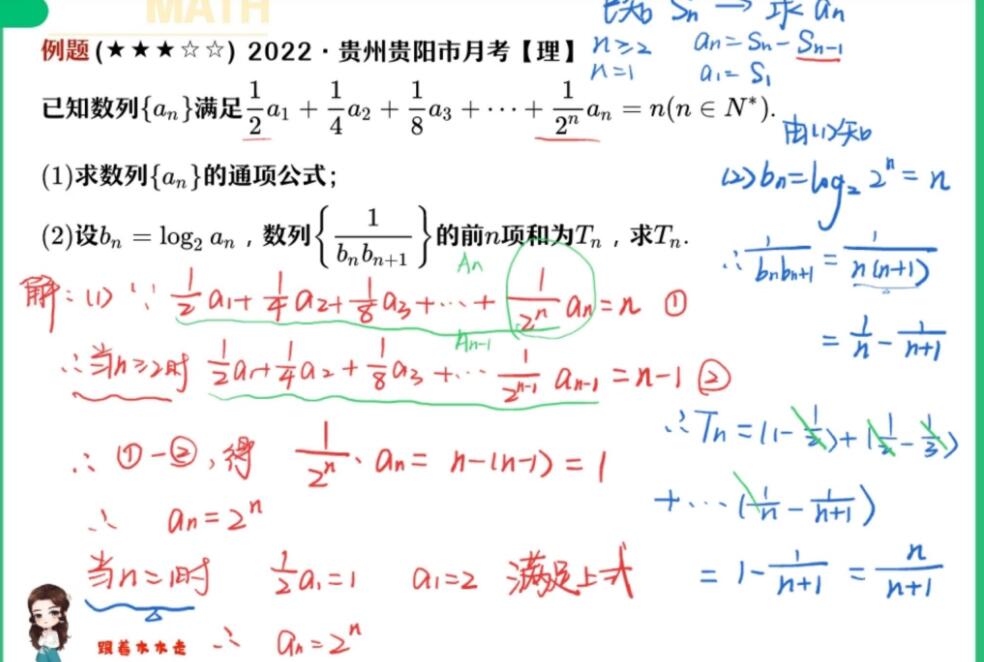 MATH
已知 Sn → 求 an
例题 (★★★☆☆) 2022·贵州贵阳市月考【理】
n≥2 an=Sn-Sn-1
n=1 a1=S1
已知数列{aₙ}满足 1/2 a₁ + 1/4 a₂ + 1/8 a₃ + ⋯ + 1/2ⁿ aₙ = n(n ∈ N*).
(1)求数列{aₙ}的通项公式;
(2)设bₙ = log₂ aₙ , 数列{1/(bₙbₙ₊₁)}的前n项和为Tₙ , 求Tₙ.
解:(1) ∵ 1/2 a₁+1/4 a₂+1/8 a₃+⋯+ 1/2ⁿ aₙ=n ①
An
∴当n≥2时 1/2 a₁+1/4 a₂+1/8 a₃+⋯ 1/2ⁿ⁻¹ aₙ₋₁=n-1 ②
An-1
∴ ①-②,得 1/2ⁿ · aₙ= n-(n-1)=1
∴ aₙ=2ⁿ
当n=1时 1/2 a₁=1 a₁=2 满足上式
∴ aₙ=2ⁿ
由(1)知
(2)bₙ=log₂ 2ⁿ=n
∴ 1/(bₙbₙ₊₁)=1/(n(n+1))
=1/n-1/(n+1)
∴Tₙ=(1-1/2)+(1/2-1/3)
+⋯(1/n-1/(n+1))
=1-1/(n+1)=n/(n+1)
跟着木木走